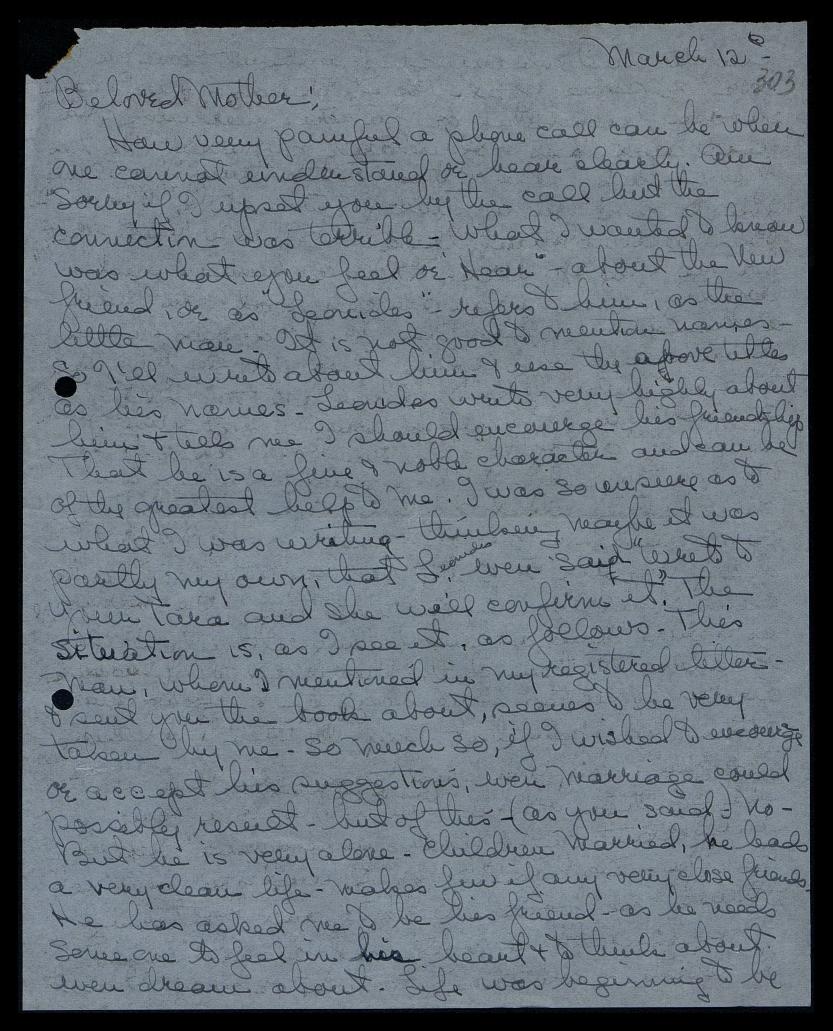 March 12th -
303
Beloved Mother;
How very painful a phone call can be when
one cannot understand or hear clearly. Am
sorry if I upset you by the call but the
connection was terrible - What I wanted to know
was what you feel or "Hear" - about the New
friend, or as "Leonides" - refers to him, as the
little man. It is not good to mention names -
So I'll write about him & use the above titles
as his names - Leonides writes very highly about
him & tells me I should encourage his friendship
That he is a fine & noble character and can be
of the greatest help to me. I was so unsure as to
what I was writing - thinking maybe it was
partly my own, that Leonides even said "Write to
your Tara and she will confirm it". The
situation is, as I see it, as follows - This
man, whom I mentioned in my registered letter -
& sent you the book about, seems to be very
taken by me - so much so, if I wished to encourage
or accept his suggestions, even marriage could
possibly result - but of this - (as you said -) No -
But he is very alone - Children Married, he leads
a very clean life - makes few if any very close friends.
He has asked me to be his friend - as he needs
someone to feel in his heart & to think about
even dream about. Life was beginning to be